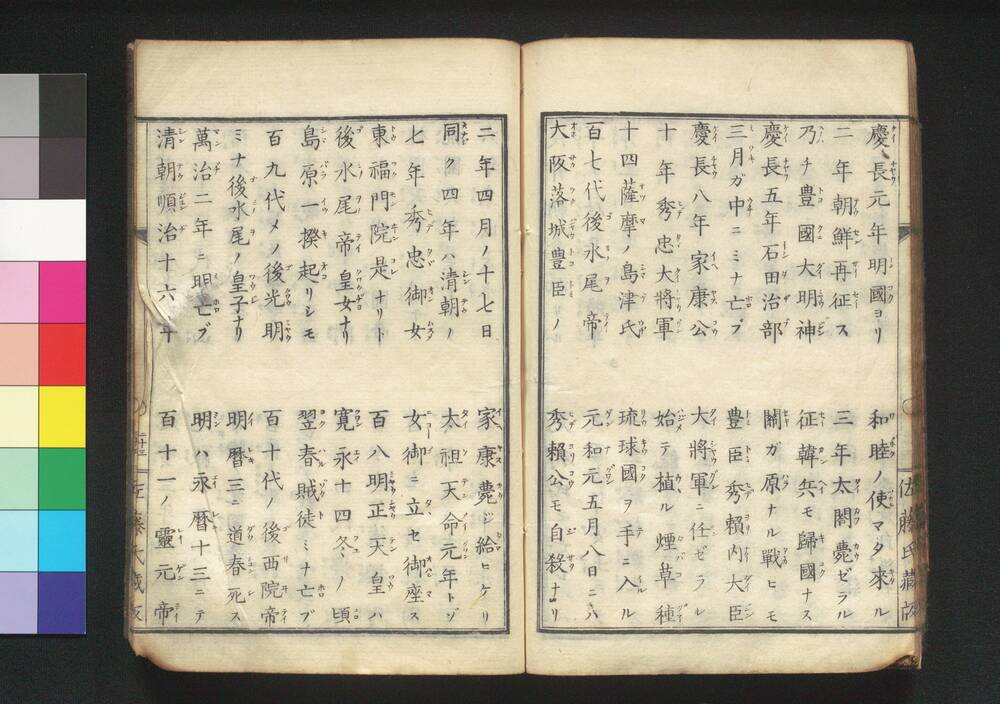 慶長元年明國ヨリ 和睦ノ使マタ來ル
二年朝鮮再征ス 三年太閤薨ゼラル
乃チ豊國大明神 征韓兵モ歸國ナス
慶長五年石田治部 關ガ原ナル戰ヒモ
三月ガ中ニミナ亡ブ 豊臣秀頼内大臣
慶長八年家康公 大將軍ニ任ゼラル
十年秀忠大將軍 始テ植ル煙草種
十四薩摩ノ島津氏 琉球國ヲ手ニ入ル
百七代後水尾帝 元和元五月八日ニハ
大阪落城豊臣ノ 秀頼公モ自殺ナリ
佐藤氏藏版
二年四月ノ十七日 家康薨ジ給ヒケリ
同ク四年ハ清朝ノ 太祖天命元年トゾ
七年秀忠御女 女御ニ立セ御座ス
東福門院是ナリト 百八明正天皇ハ
後水尾帝皇女ナリ 寛永十四冬ノ頃
島原一揆起リシモ 翌春賊徒ミナ亡ブ
百九代メノ後光明 百十代ノ後西院帝
ミナ後水尾ノ皇子ナリ 明暦三ニ道春死ス
萬治二年ニ明亡ブ 明ハ永暦十三ニテ
清朝順治十六年 百十一ノ靈元帝
二十三
左藤氏藏版